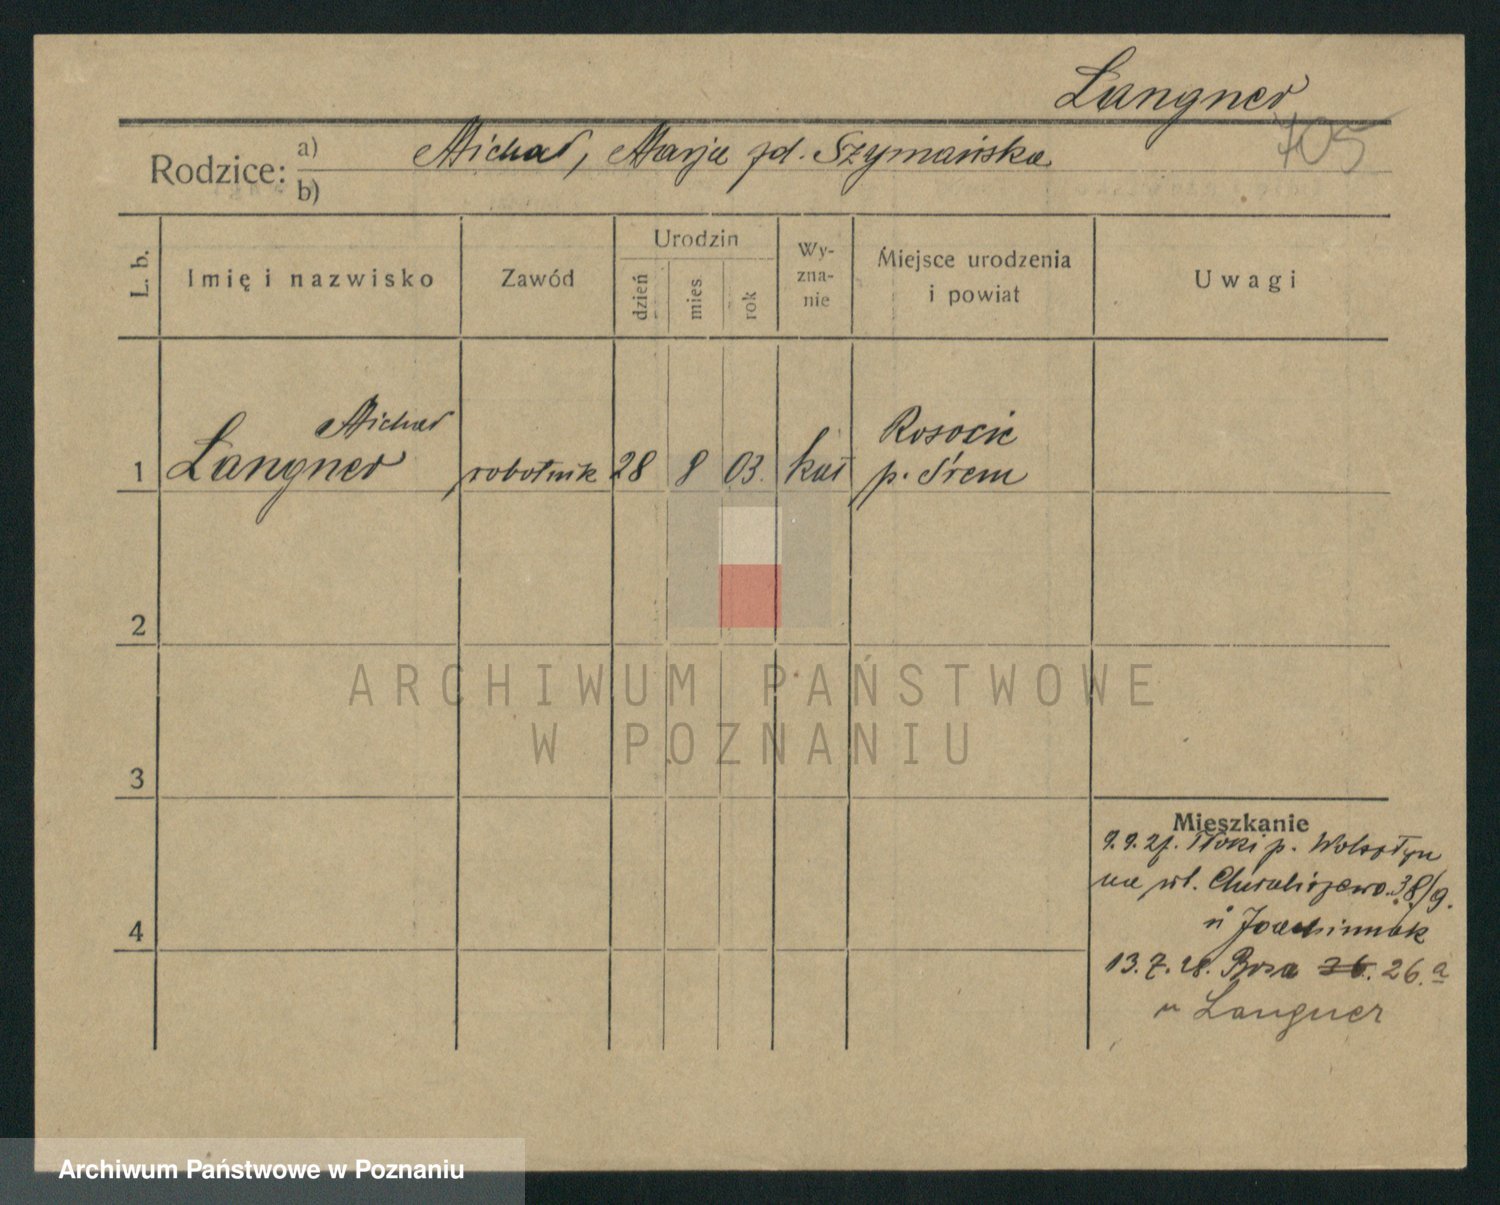 Langner
405
Rodzice: a) Michał, Marja zd. Szymańska
b)
L. b.
Imię i nazwisko
Zawód
Urodzin
dzień
mies
rok
Wy-
zna-
nie
Miejsce urodzenia
i powiat
Uwagi
Michał
1 Langner robotnik 28 8 03. kat
Rosocic
p. Śrem
2
3
4
ARCHIWUM PAŃSTWOWE
W POZNANIU
Mieszkanie
9.9.27. Tłoki p. Wolsztyn
na wł. Chwaliszewo 38/9.
u Joachimiak
13.7.28. Boża 26. 26.a
u Langner
Archiwum Państwowe w Poznaniu